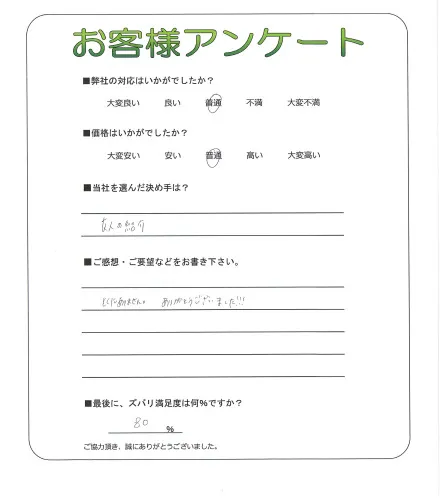 お客様アンケート
■弊社の対応はいかがでしたか？
大変良い 良い 普通 不満 大変不満
■価格はいかがでしたか？
大変安い 安い 普通 高い 大変高い
■当社を選んだ決め手は？
友人の紹介
■ご感想・ご要望などをお書き下さい。
特にありません。 ありがとうございました!!!
■最後に、ズバリ満足度は何％ですか？
80 ％
ご協力頂き、誠にありがとうございました。